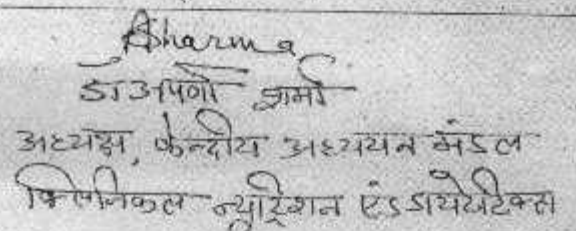 Asharma
डॉ अपर्णा शर्मा
अध्यक्ष, केन्द्रीय अध्ययन मंडल
क्लिनिकल न्यूट्रिशन एंड डायेटेटिक्स